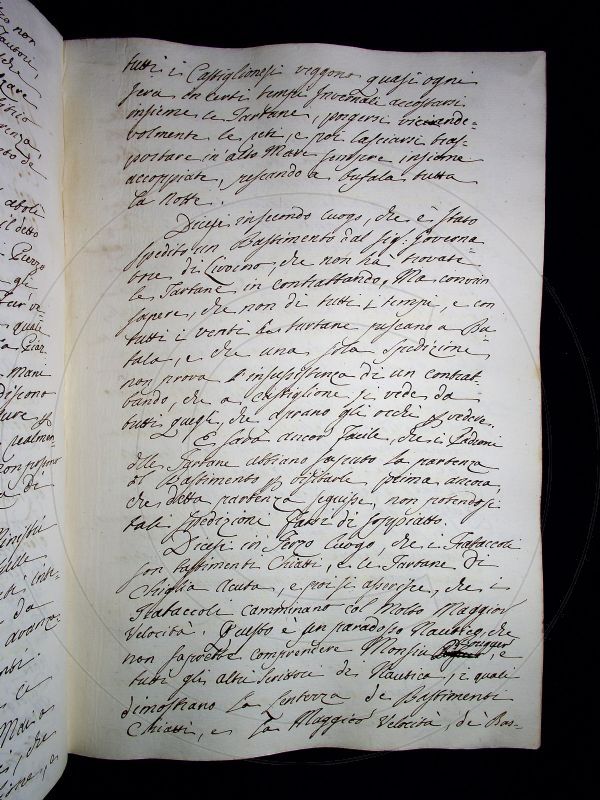 tutti i Castiglionesi veggono quasi ogni
sera in certi tempi accostarsi
insieme le Tartane, porgersi vicende-
volmente le reti, e poi lasciarsi tras-
portare in alto Mare sempre insieme
accoppiate, pescando a bufala tutta
la notte.
Dicesi in secondo luogo, che è stato
spedito un Bastimento dal Sig. Governa
tore di Livorno, che non ha trovati
le Tartane in contrattando, Ma convien
sapere, che non di tutti i tempi, e con
tutti i venti le tartane pescano a Bu
fala, e che una sola spedizione
non prova l'insussistenza di un contrab-
bando, che a Castiglione si vede da
tutti quegli, che aprano gli occhi p vedere.
E sarà ancor facile, che i Padroni
delle Tartane abbiano saputo la partenza
del Bastimento p visitarle prima ancora,
che detta partenza seguisse, non potendosi
tale spedizione farsi di soppiatto.
Dicesi in Terzo Luogo, che i Frataccoli
son bastimenti Chiatti, e le Tartane di
Chiglia acuta, e poi si asserisce, che i
Frataccoli camminano col Molto Maggior
Velocità. Questo è un paradosso Nautico, che
non saprebbe comprendere Monsiu Bouguer, e
tutti gli altri scrittori di Nautica, i quali
dimostrano la lentezza de Bastimenti
Chiatti, e la Maggior Velocità, de Bas-